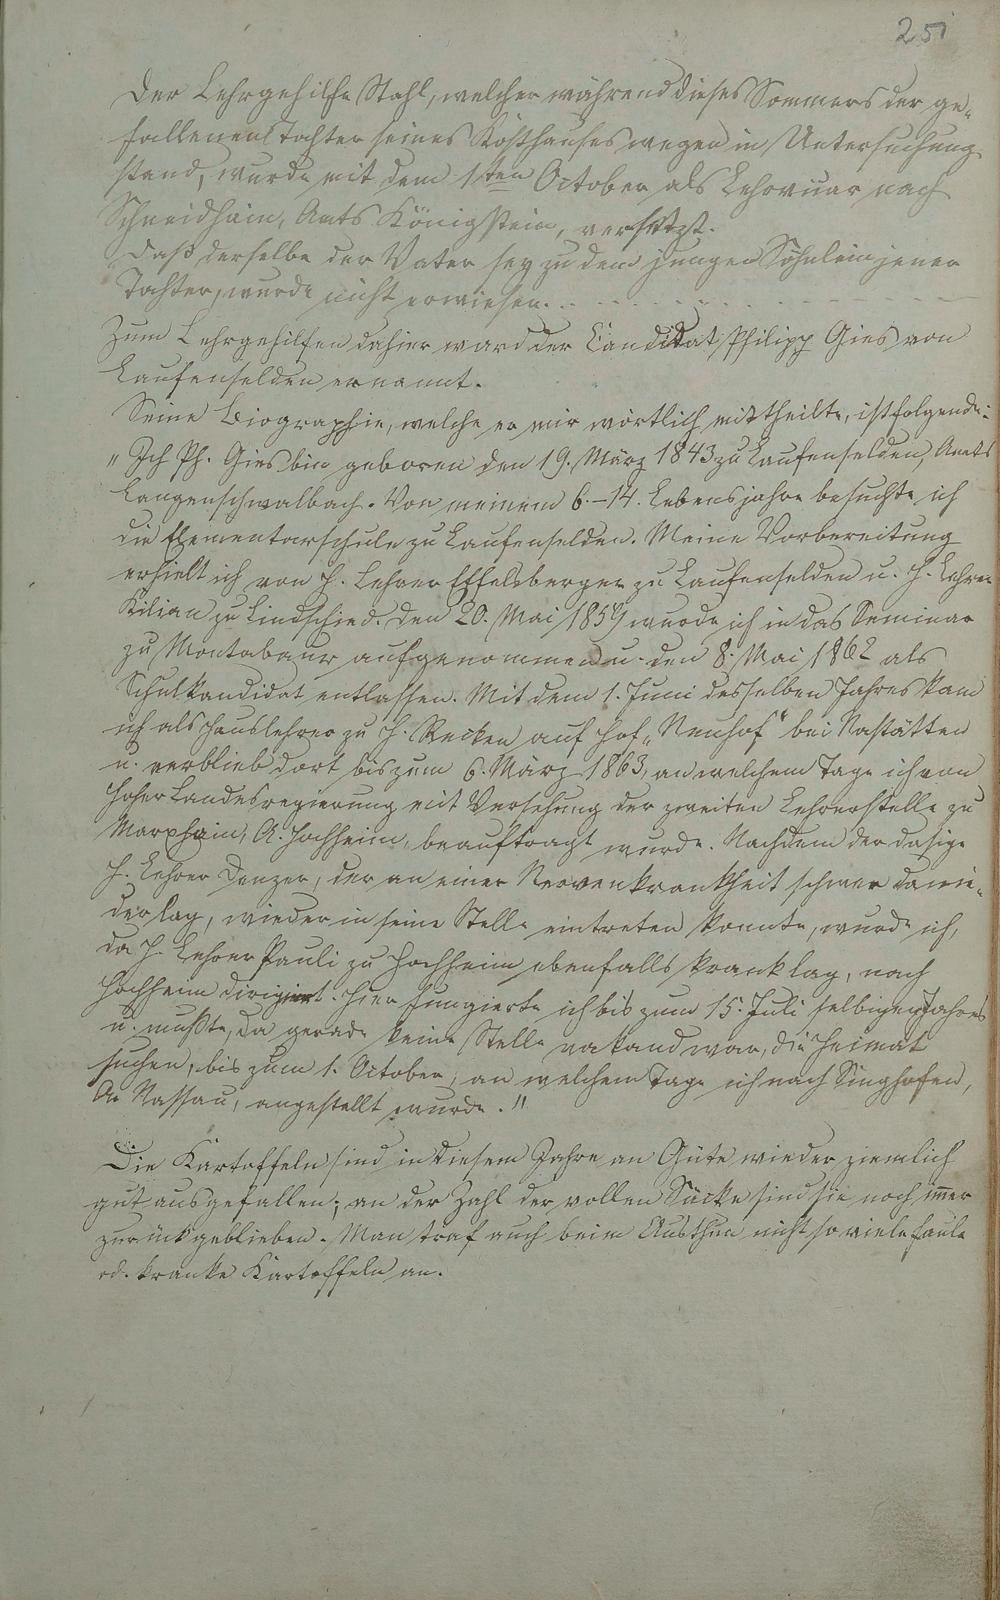 25
Der Lehrgehilfe Stahl, welcher während dieses Sommers der ge-
fallenen Tochter seines Kosthauses wegen in Untersuchung
stand, wurde mit dem 1ten October als Lehrvicar nach
Schneidhain, Amts Königstein, versetzt.
Daß derselbe der Vater sey zu dem jungen Söhnlein jener
Tochter, wurde nicht erwiesen. . - - - - - - - - - -
Zum Lehrgehilfen dahier ward der Candidat Philipp Gies von
Laufenselden ernannt.
Seine Biographie, welche er mir wörtlich mittheilte, ist folgende:
„Ich Ph. Gies bin geboren den 19. März 1843 zu Laufenselden, Amts
Langenschwalbach. Von meinem 6-14. Lebensjahre besuchte ich
die Elementarschule zu Laufenselden. Meine Vorbereitung
erhielt ich von H. Lehrer Effelsberger zu Laufenselden u. H. Lehrer
Kilian zu Lindschied. Den 20. Mai 1859 wurde ich in das Seminar
zu Montabaur aufgenommen u. den 8. Mai 1862 als
Schulkandidat entlassen. Mit dem 1. Juni desselben Jahres kam
ich als Hauslehrer zu H. Recken auf Hof „Neuhof“ bei Nastätten
u. verblieb dort bis zum 6. März 1863, an welchem Tage ich von
hoher Landesregierung mit Versehung der zweiten Lehrerstelle zu
Marxheim, A. Hochheim, beauftragt wurde. Nachdem der dasige
H. Lehrer Denzer, der an einer Nervenkrankheit schwer darnie-
der lag, wieder in seine Stelle eintreten konnte, wurde ich,
da H. Lehrer Pauli zu Hochheim ebenfalls krank lag, nach
Hochheim dirigirt. Hier fungierte ich bis zum 15. Juli selbigen Jahres
u. mußte, da gerade keine Stelle vakand war, die Heimat
suchen, bis zum 1. October, an welchem Tage ich nach Singhofen,
A. Nassau, angestellt wurde."
Die Kartoffeln sind in diesem Jahre an Güte wieder ziemlich
gut ausgefallen; an der Zahl der vollen Säcke sind sie noch imer
zurückgeblieben. Man traf auch beim Austhun nicht so viele faule
od. kranke Kartoffeln an.